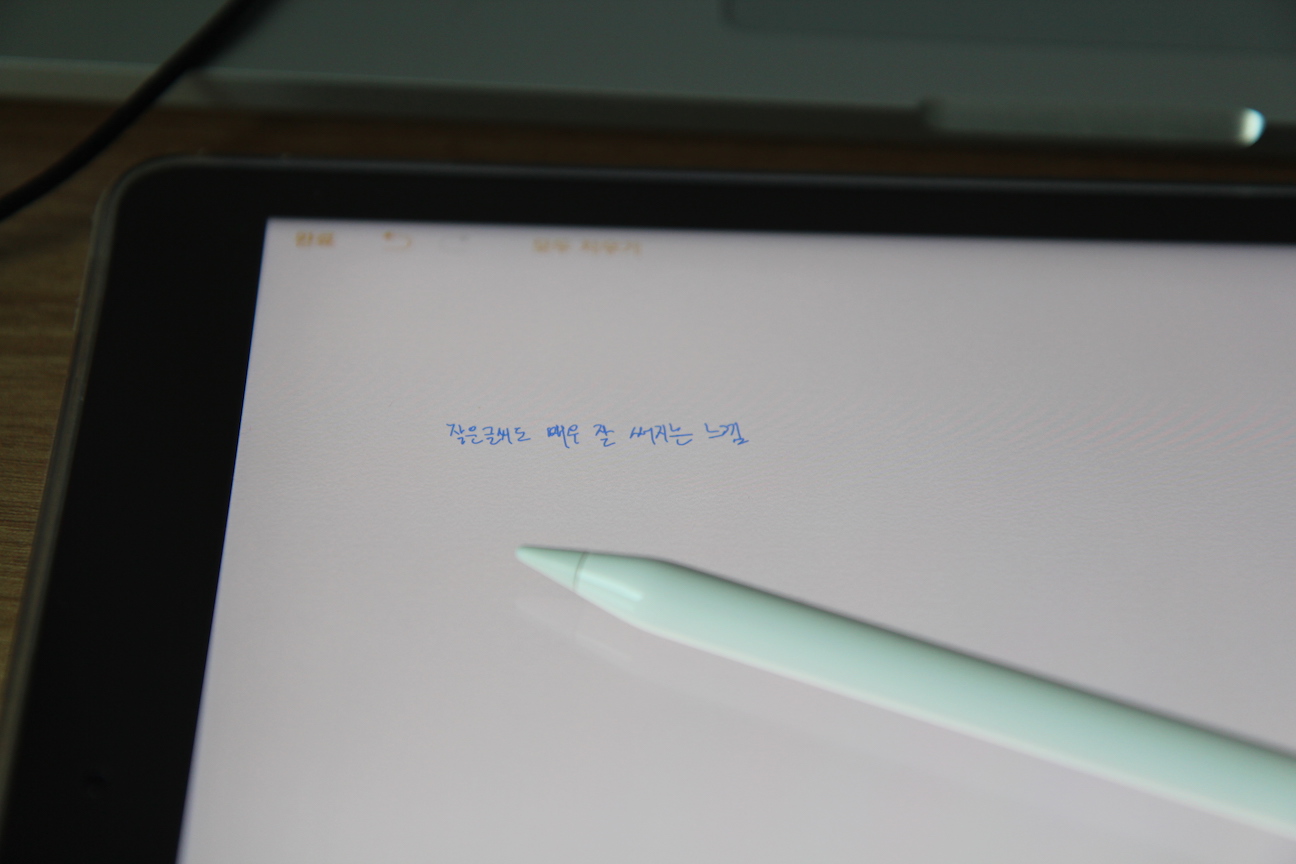 완료 모두 지우기
작은글씨도 매우 잘 써지는 느낌